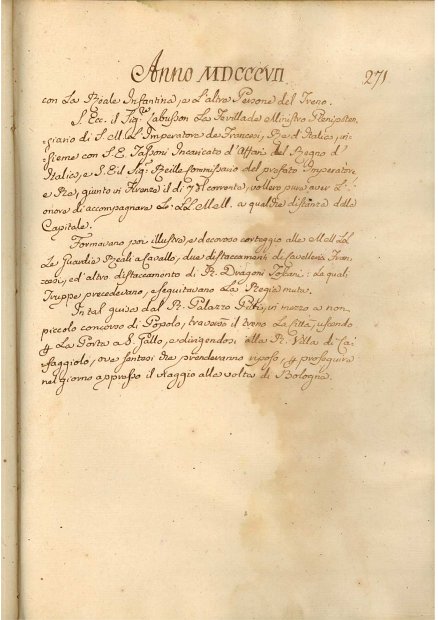 Anno MDCCCVII
271
con La Reale Infantina, e L'altre Persone del Treno.
S. Ecc. il Sig.re Labusson La Fevillade Ministro Plenipoten-
ziario di S. M. L'Imperatore de Francesi, Re d'Italia, in-
sieme con S. E. Tassoni Incaricato d'Affari del Regno d'
Italia, e S. E. il Sig.r Reille Commissario del prefato Imperatore,
e Re, giunto in Firenze il dì 7 del corrente, vollero pure aver L'o-
nore di accompagnare Le LL. MM. a qualche distanza dalla
Capitale.
Formavano poi illustre, e decoroso corteggio alle MM. LL.
Le Guardie Reali a Cavallo, due distaccamenti di Cavalleria Fran-
zese, ed altro distaccamento di R. Dragoni Toscani: Le quali
Truppe precedevano, e seguitavano La Regia muta.
In tal guisa dal R. Palazzo Pitti, in mezzo a non
piccolo concorso di Popolo, traversò il treno La Città, uscendo
p La Porta a S. Gallo, e dirigendosi alla R. Villa di Ca-
faggiolo, ove prendevano riposo, p proseguire
nel giorno appresso il viaggio alla volta di Bologna.